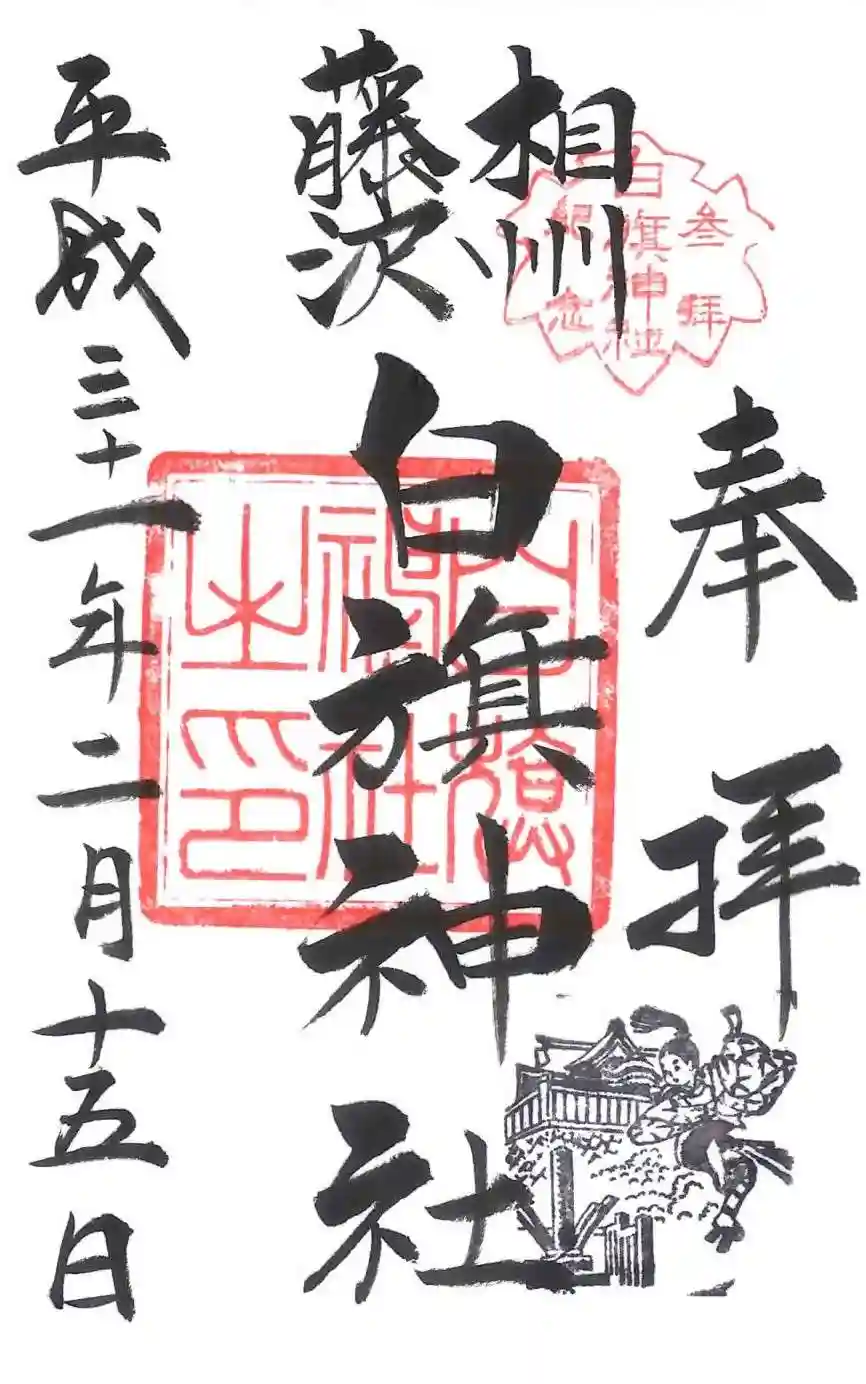 奉拝
相州
藤沢
白旗神社
平成三十一年二月十五日
叁拝
白旗神社
記念
白旗
神社
之印